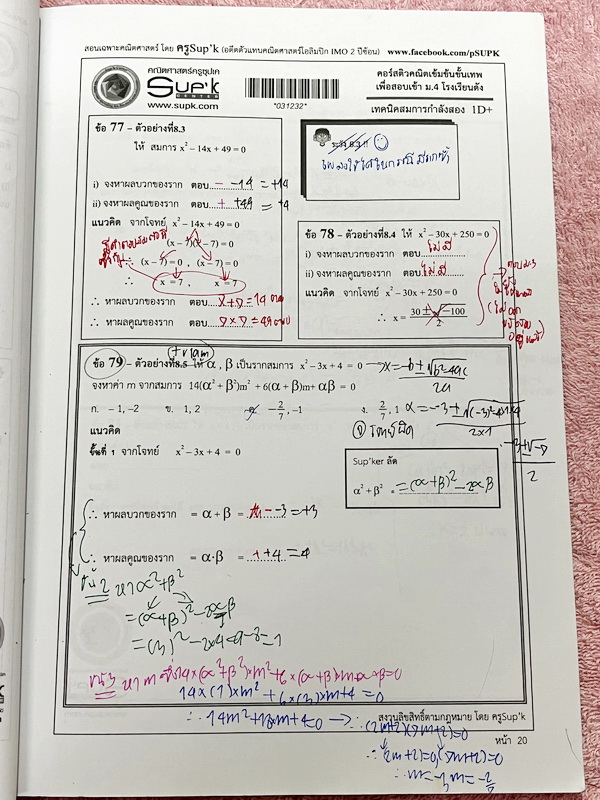 สอนเฉพาะคณิตศาสตร์ โดย ครูSup'k (อดีตตัวแทนคณิตศาสตร์โอลิมปิก IMO 2 ปีซ้อน) www.facebook.com/pSUPK
คณิตศาสตร์ครูซุปเค
Sup'k
CENTER
www.supk.com
*031232*
คอร์สติวคณิตเข้มข้นขั้นเทพ
เพื่อสอบเข้า ม.4 โรงเรียนดัง
เทคนิคสมการกำลังสอง 1D+
ข้อ 77 – ตัวอย่างที่8.3
ให้ สมการ x² – 14x + 49 = 0
i) จงหาผลบวกของราก ตอบ – -14 = +14
ii) จงหาผลคูณของราก ตอบ + +49
แนวคิด จากโจทย์ x² – 14x + 49 = 0
(x – 7)(x – 7) = 0
∴ (x – 7) = 0 , (x – 7) = 0
∴ x = 7 , x = 7
∴ หาผลบวกของราก ตอบ 7+7 = 14 ตอบ
∴ หาผลคูณของราก ตอบ 7×7 = 49 ตอบ
ระวัง 8.3 !!
ข้อ 78 – ตัวอย่างที่8.4 ให้ x² – 30x + 250 = 0
i) จงหาผลบวกของราก ตอบ ไม่มี
ii) จงหาผลคูณของราก ตอบ ไม่มี
แนวคิด จากโจทย์ x² – 30x + 250 = 0
∴ x = 30 ± √–100 / 2
ข้อ 79 – ตัวอย่างที่8.5 ให้ α , β เป็นรากสมการ x² – 3x + 4 = 0 → x = -b ± √b²-4ac / 2a
จงหาค่า m จากสมการ 14(α² + β²)m² + 6(α + β)m + αβ = 0
ก. – 1, –2 ข. 1, 2 ค. –2/7 , –1 ง. 2/7 , 1
แนวคิด
โจทย์ผิด
ขั้นที่ 1 จากโจทย์ x² – 3x + 4 = 0
Sup'ker ลัด
α² + β² = (α+β)² – 2αβ
∴ หาผลบวกของราก = α + β = – -3 = +3
∴ หาผลคูณของราก = α·β = + +4 = 4
ขั้น 2 หา α²+β²
= (α+β)² – 2αβ
= (3)² – 2×4 = 9 – 8 = 1
14×(1)×m² + 6×(3)×m + 4 = 0
∴ 14m² + 18m + 4 = 0 → ∴ (2m+2)(7m+2) = 0
∴ (2m+2) = 0, (7m+2) = 0
∴ m = -1, m = -2/7
สงวนลิขสิทธิ์ตามกฎหมาย โดย ครูSup'k
หน้า 20